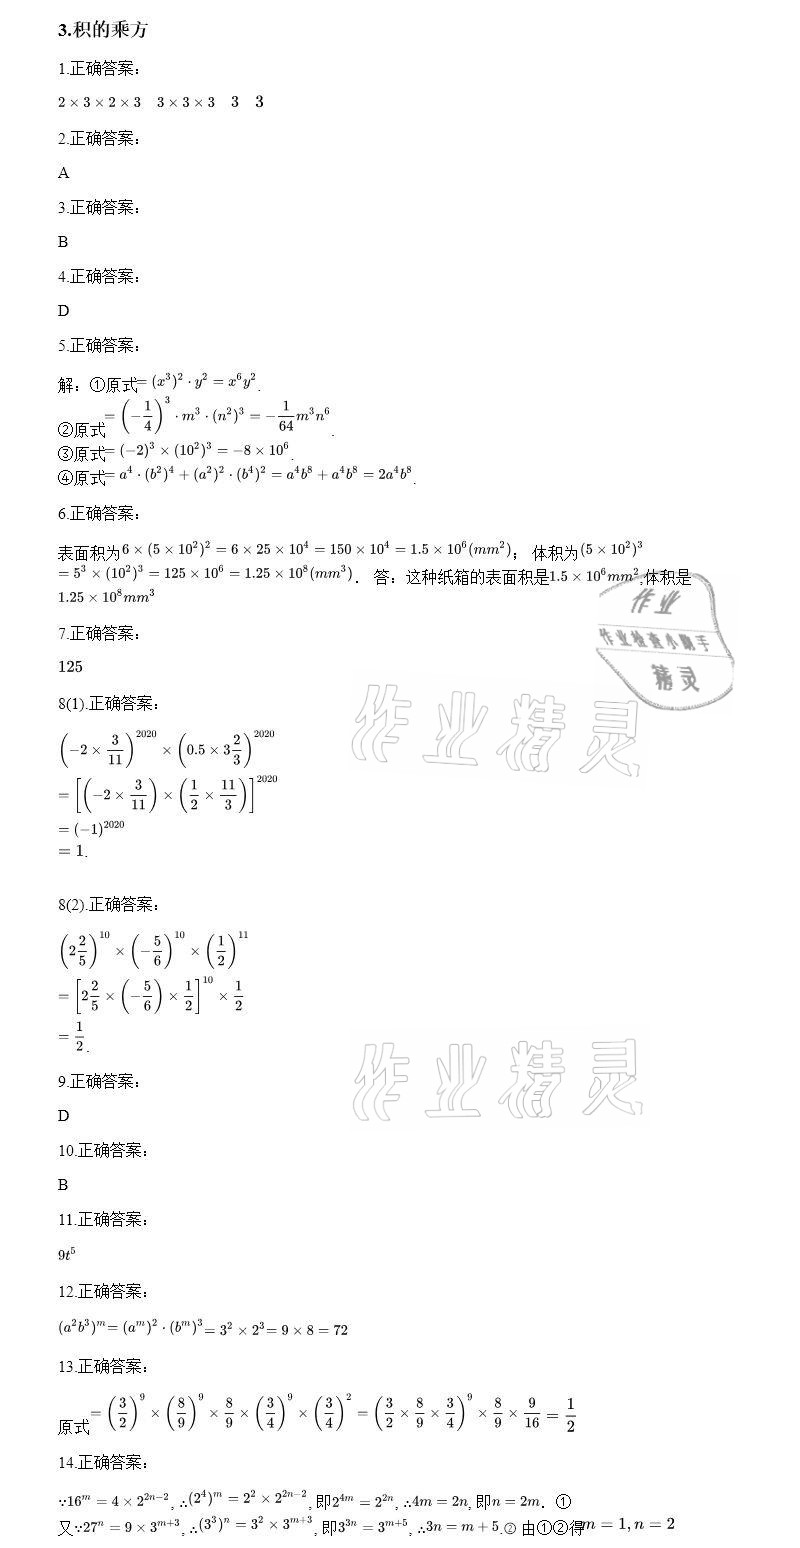 3.积的乘方
1.正确答案：
2 × 3 × 2 × 3　3 × 3 × 3　3　3
2.正确答案：
A
3.正确答案：
B
4.正确答案：
D
5.正确答案：
解：①原式= (x³)² · y² = x⁶y².
②原式= (−1/4)³ · m³ · (n²)³ = −1/64 m³n⁶.
③原式= (−2)³ × (10²)³ = −8 × 10⁶.
④原式= a⁴ · (b²)⁴ + (a²)² · (b⁴)² = a⁴b⁸ + a⁴b⁸ = 2a⁴b⁸.
6.正确答案：
表面积为6 × (5 × 10²)² = 6 × 25 × 10⁴ = 150 × 10⁴ = 1.5 × 10⁶(mm²)； 体积为(5 × 10²)³
= 5³ × (10²)³ = 125 × 10⁶ = 1.25 × 10⁸(mm³)． 答：这种纸箱的表面积是1.5 × 10⁶mm²,体积是
1.25 × 10⁸mm³
作业
作业检查小助手
精灵
7.正确答案：
125
8(1).正确答案：
(−2 × 3/11)²⁰²⁰ × (0.5 × 3 2/3)²⁰²⁰
= [(−2 × 3/11) × (1/2 × 11/3)]²⁰²⁰
= (−1)²⁰²⁰
= 1.
作业精灵
8(2).正确答案：
(2 2/5)¹⁰ × (−5/6)¹⁰ × (1/2)¹¹
= [2 2/5 × (−5/6) × 1/2]¹⁰ × 1/2
= 1/2.
作业精灵
9.正确答案：
D
10.正确答案：
B
11.正确答案：
9t⁵
12.正确答案：
(a²b³)ᵐ= (aᵐ)² · (bᵐ)³= 3² × 2³= 9 × 8 = 72
13.正确答案：
原式= (3/2)⁹ × (8/9)⁹ × 8/9 × (3/4)⁹ × (3/4)² = (3/2 × 8/9 × 3/4)⁹ × 8/9 × 9/16 = 1/2
14.正确答案：
∵16ᵐ = 4 × 2²ⁿ⁻², ∴(2⁴)ᵐ = 2² × 2²ⁿ⁻², 即2⁴ᵐ = 2²ⁿ, ∴4m = 2n, 即n = 2m．①
又∵27ⁿ = 9 × 3ᵐ⁺³, ∴(3³)ⁿ = 3² × 3ᵐ⁺³, 即3³ⁿ = 3ᵐ⁺⁵, ∴3n = m + 5.② 由①②得m = 1, n = 2